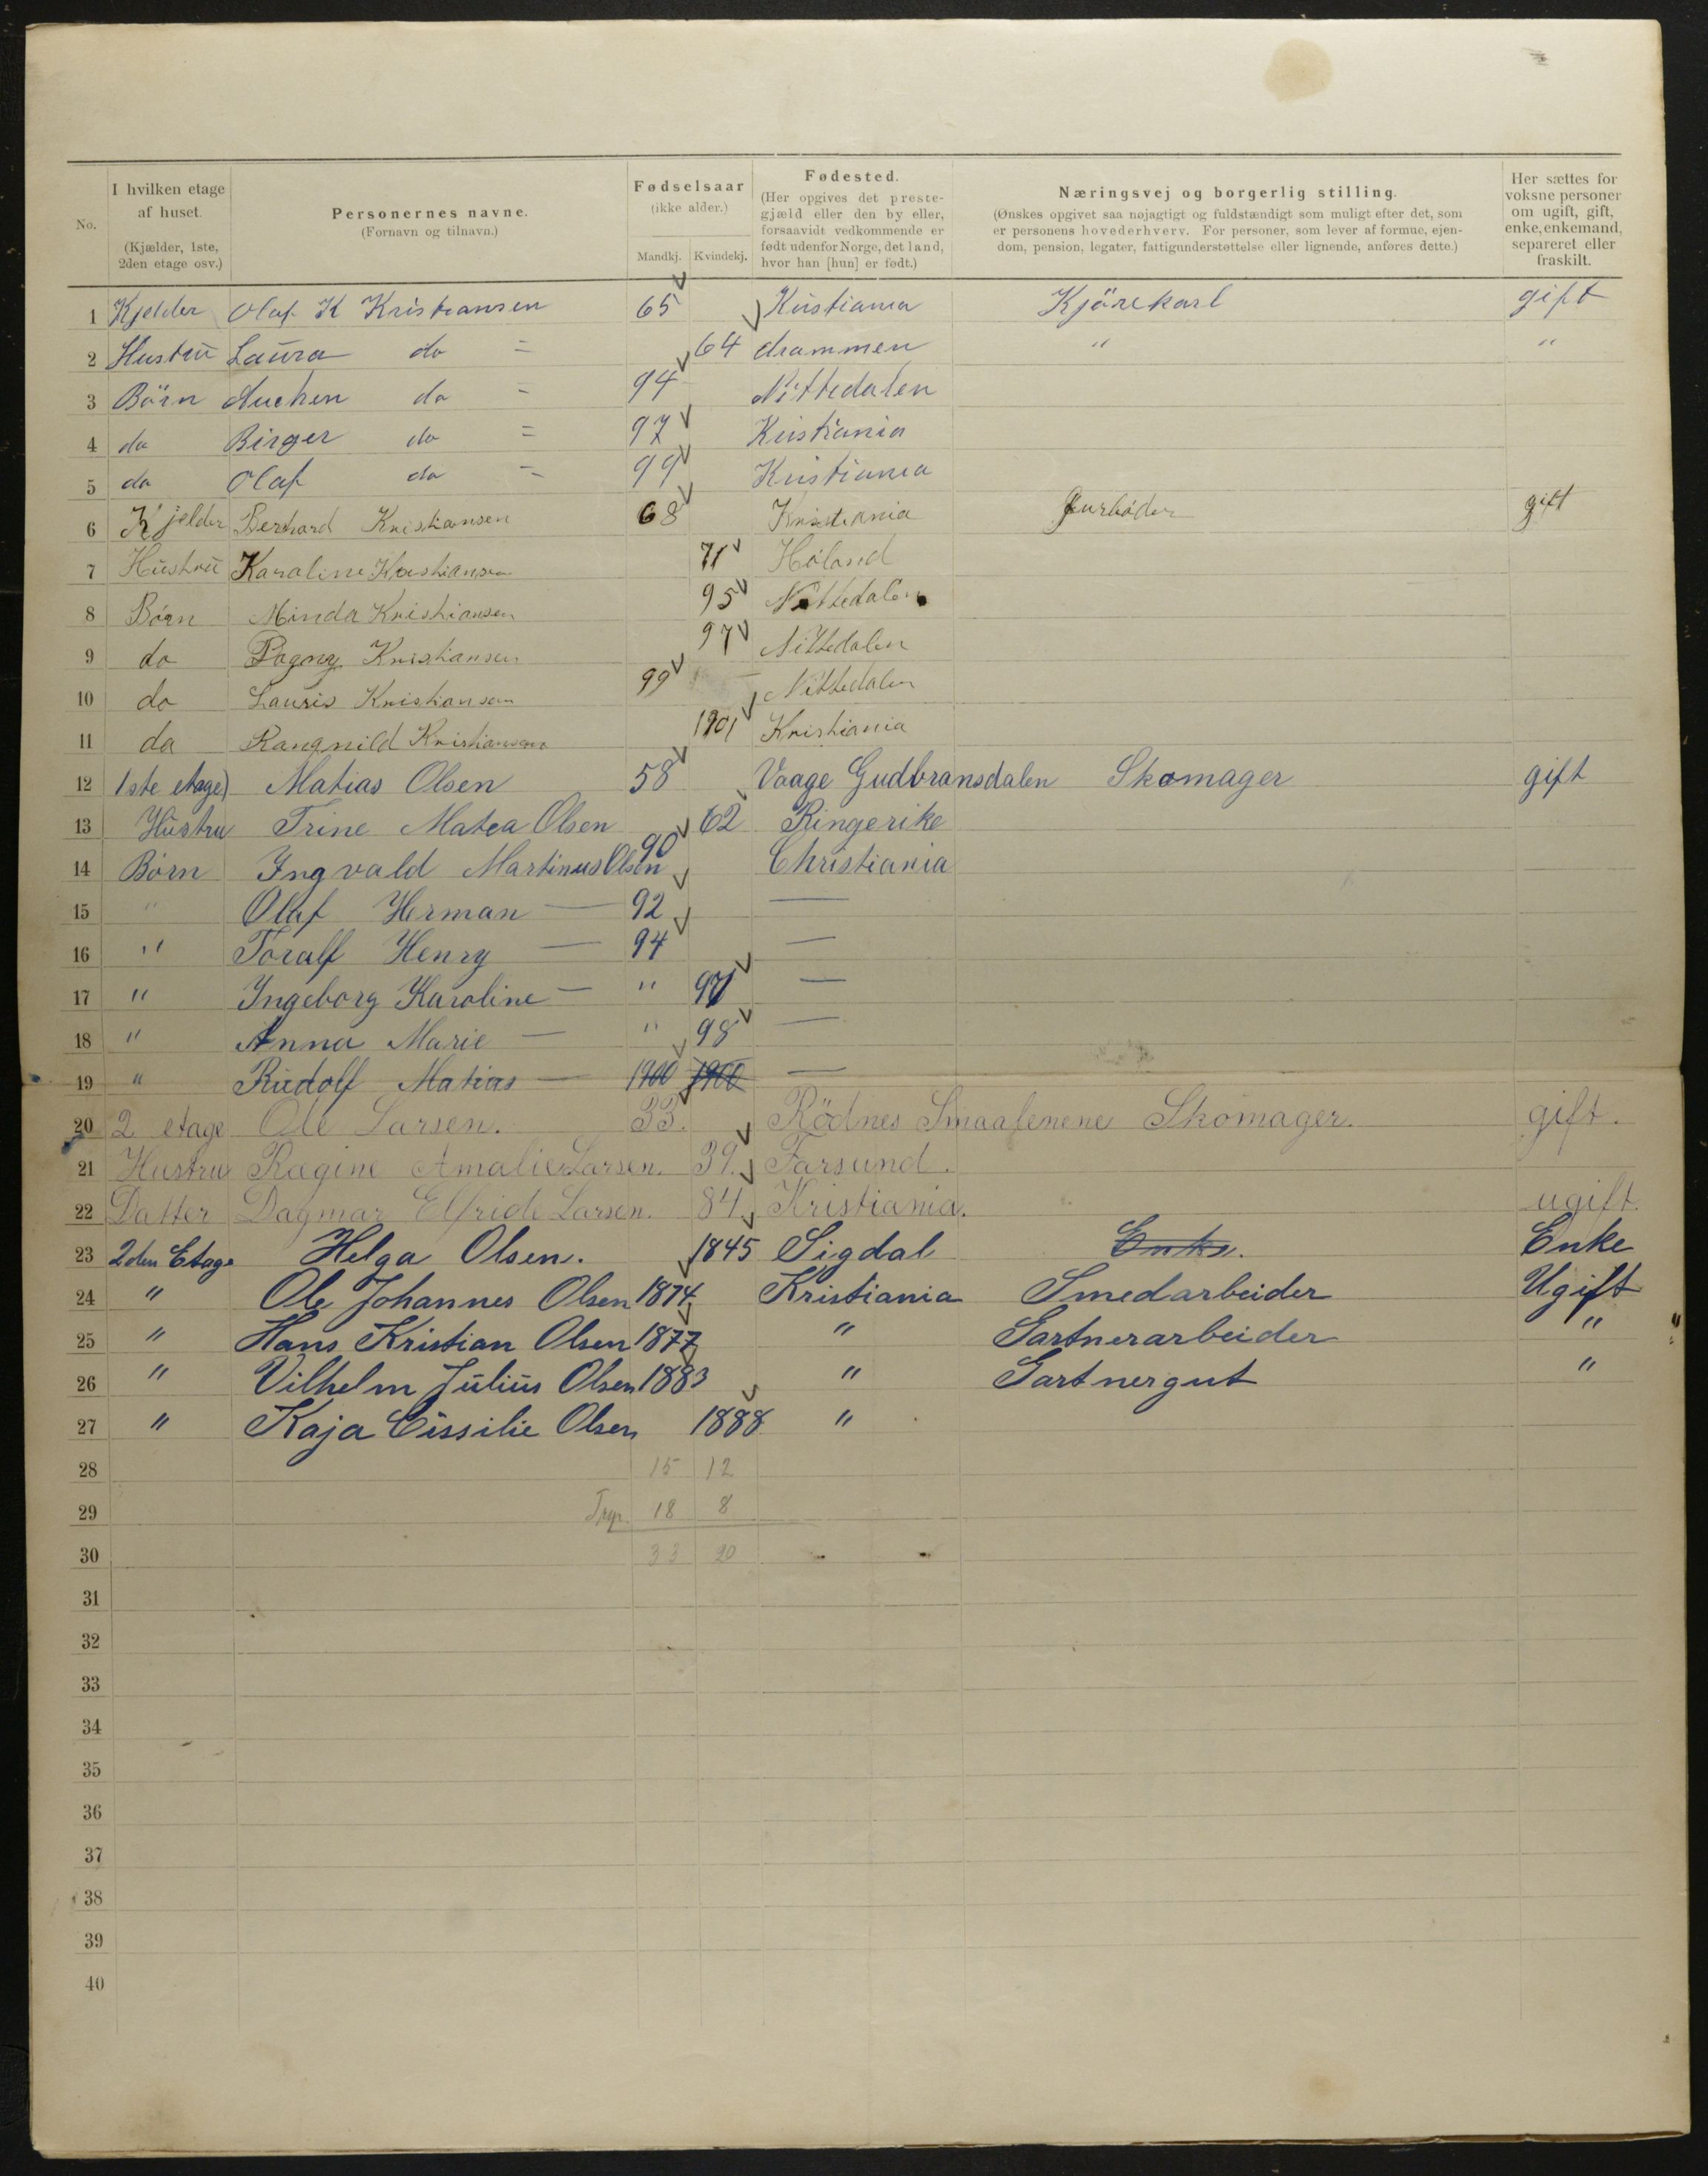 No. I hvilken etage af huset. (Kjælder, 1ste, 2den etage osv.) Personernes navne. (Fornavn og tilnavn.) Fødselsaar (ikke alder.) Mandkj. Kvindekj. Fødested. (Her opgives det prestegjæld eller den by eller, forsaavidt vedkommende er født udenfor Norge, det land, hvor han [hun] er født.) Næringsvej og borgerlig stilling. (Ønskes opgivet saa nøjagtigt og fuldstændigt som muligt efter det, som er personens hovederhverv. For personer, som lever af formue, ejendom, pension, legater, fattigunderstøttelse eller lignende, anføres dette.) Her sættes for voksne personer om ugift, gift, enke, enkemand, separeret eller fraskilt.
1 Kjelder Olaf K Kristiansen 65 Kristiania Kjörekarl gift
2 Hustru Laura do = 64 drammen " "
3 Börn do = 94 Nittedalen
4 do Birger do = 97 Kristiania
5 do Olaf do = 99 Kristiania
6 Kjelder Berhard Kristiansen 68 Kristiania gift
7 Hustru Karoline Kristiansen 71 Høland
8 Børn Minda Kristiansen 95 Nittedalen
9 do Kristiansen 97 Nittedalen
10 do Lauris Kristiansen 99 Nittedalen
11 do Rangnild Kristiansen 1901 Kristiania
12 1ste etage) Matias Olsen 58 Vaage Gudbransdalen Skomager gift
13 Hustru Trine Matea Olsen 62 Ringerike
14 Børn Ingvald Martinus Olsen 90 Christiania
15 " Olaf Herman — 92 —
16 " Toralf Henry — 94 —
17 " Ingeborg Karoline — " 97 —
18 " Anna Marie — " 98 —
19 " Rudolf Matias — 1900 1900 —
20 2 etage Ole Larsen. 33. Rödnes Smaalenene Skomager. gift.
21 Hustru Ragine Amalie Larsen. 39. Farsund.
22 Datter Dagmar Elfride Larsen. 84. Kristiania. ugift.
23 2den Etage Helga Olsen. 1845 Sigdal Enke. Enke
24 " Ole Johannes Olsen 1874 Kristiania Smedarbeider Ugift
25 " Hans Kristian Olsen 1877 " Gartnerarbeider "
26 " Vilhelm Julius Olsen 1883 " Gartnergut "
27 " Kaja Cissilie Olsen 1888 "
28 15 12
29 18 8
30 33 20
31
32
33
34
35
36
37
38
39
40